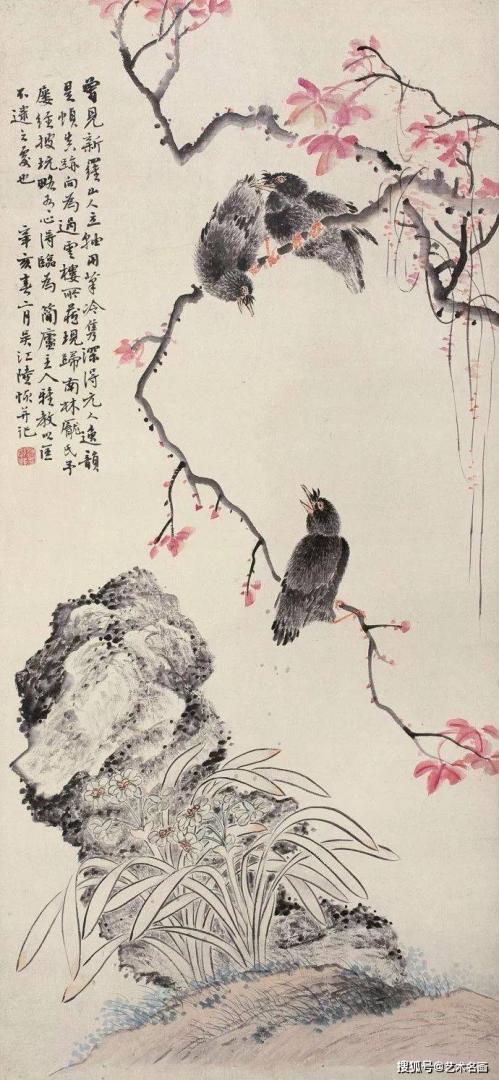 曾見新羅山人立軸用筆冷雋深得元人逸韻
是幀真跡向為過雲樓所藏現歸南林龐氏予
屢經披玩略有心得臨為簡廬主人雅教以匡
不逮之處也 辛亥春二月吳江陸恢并記
搜狐号@艺术名画